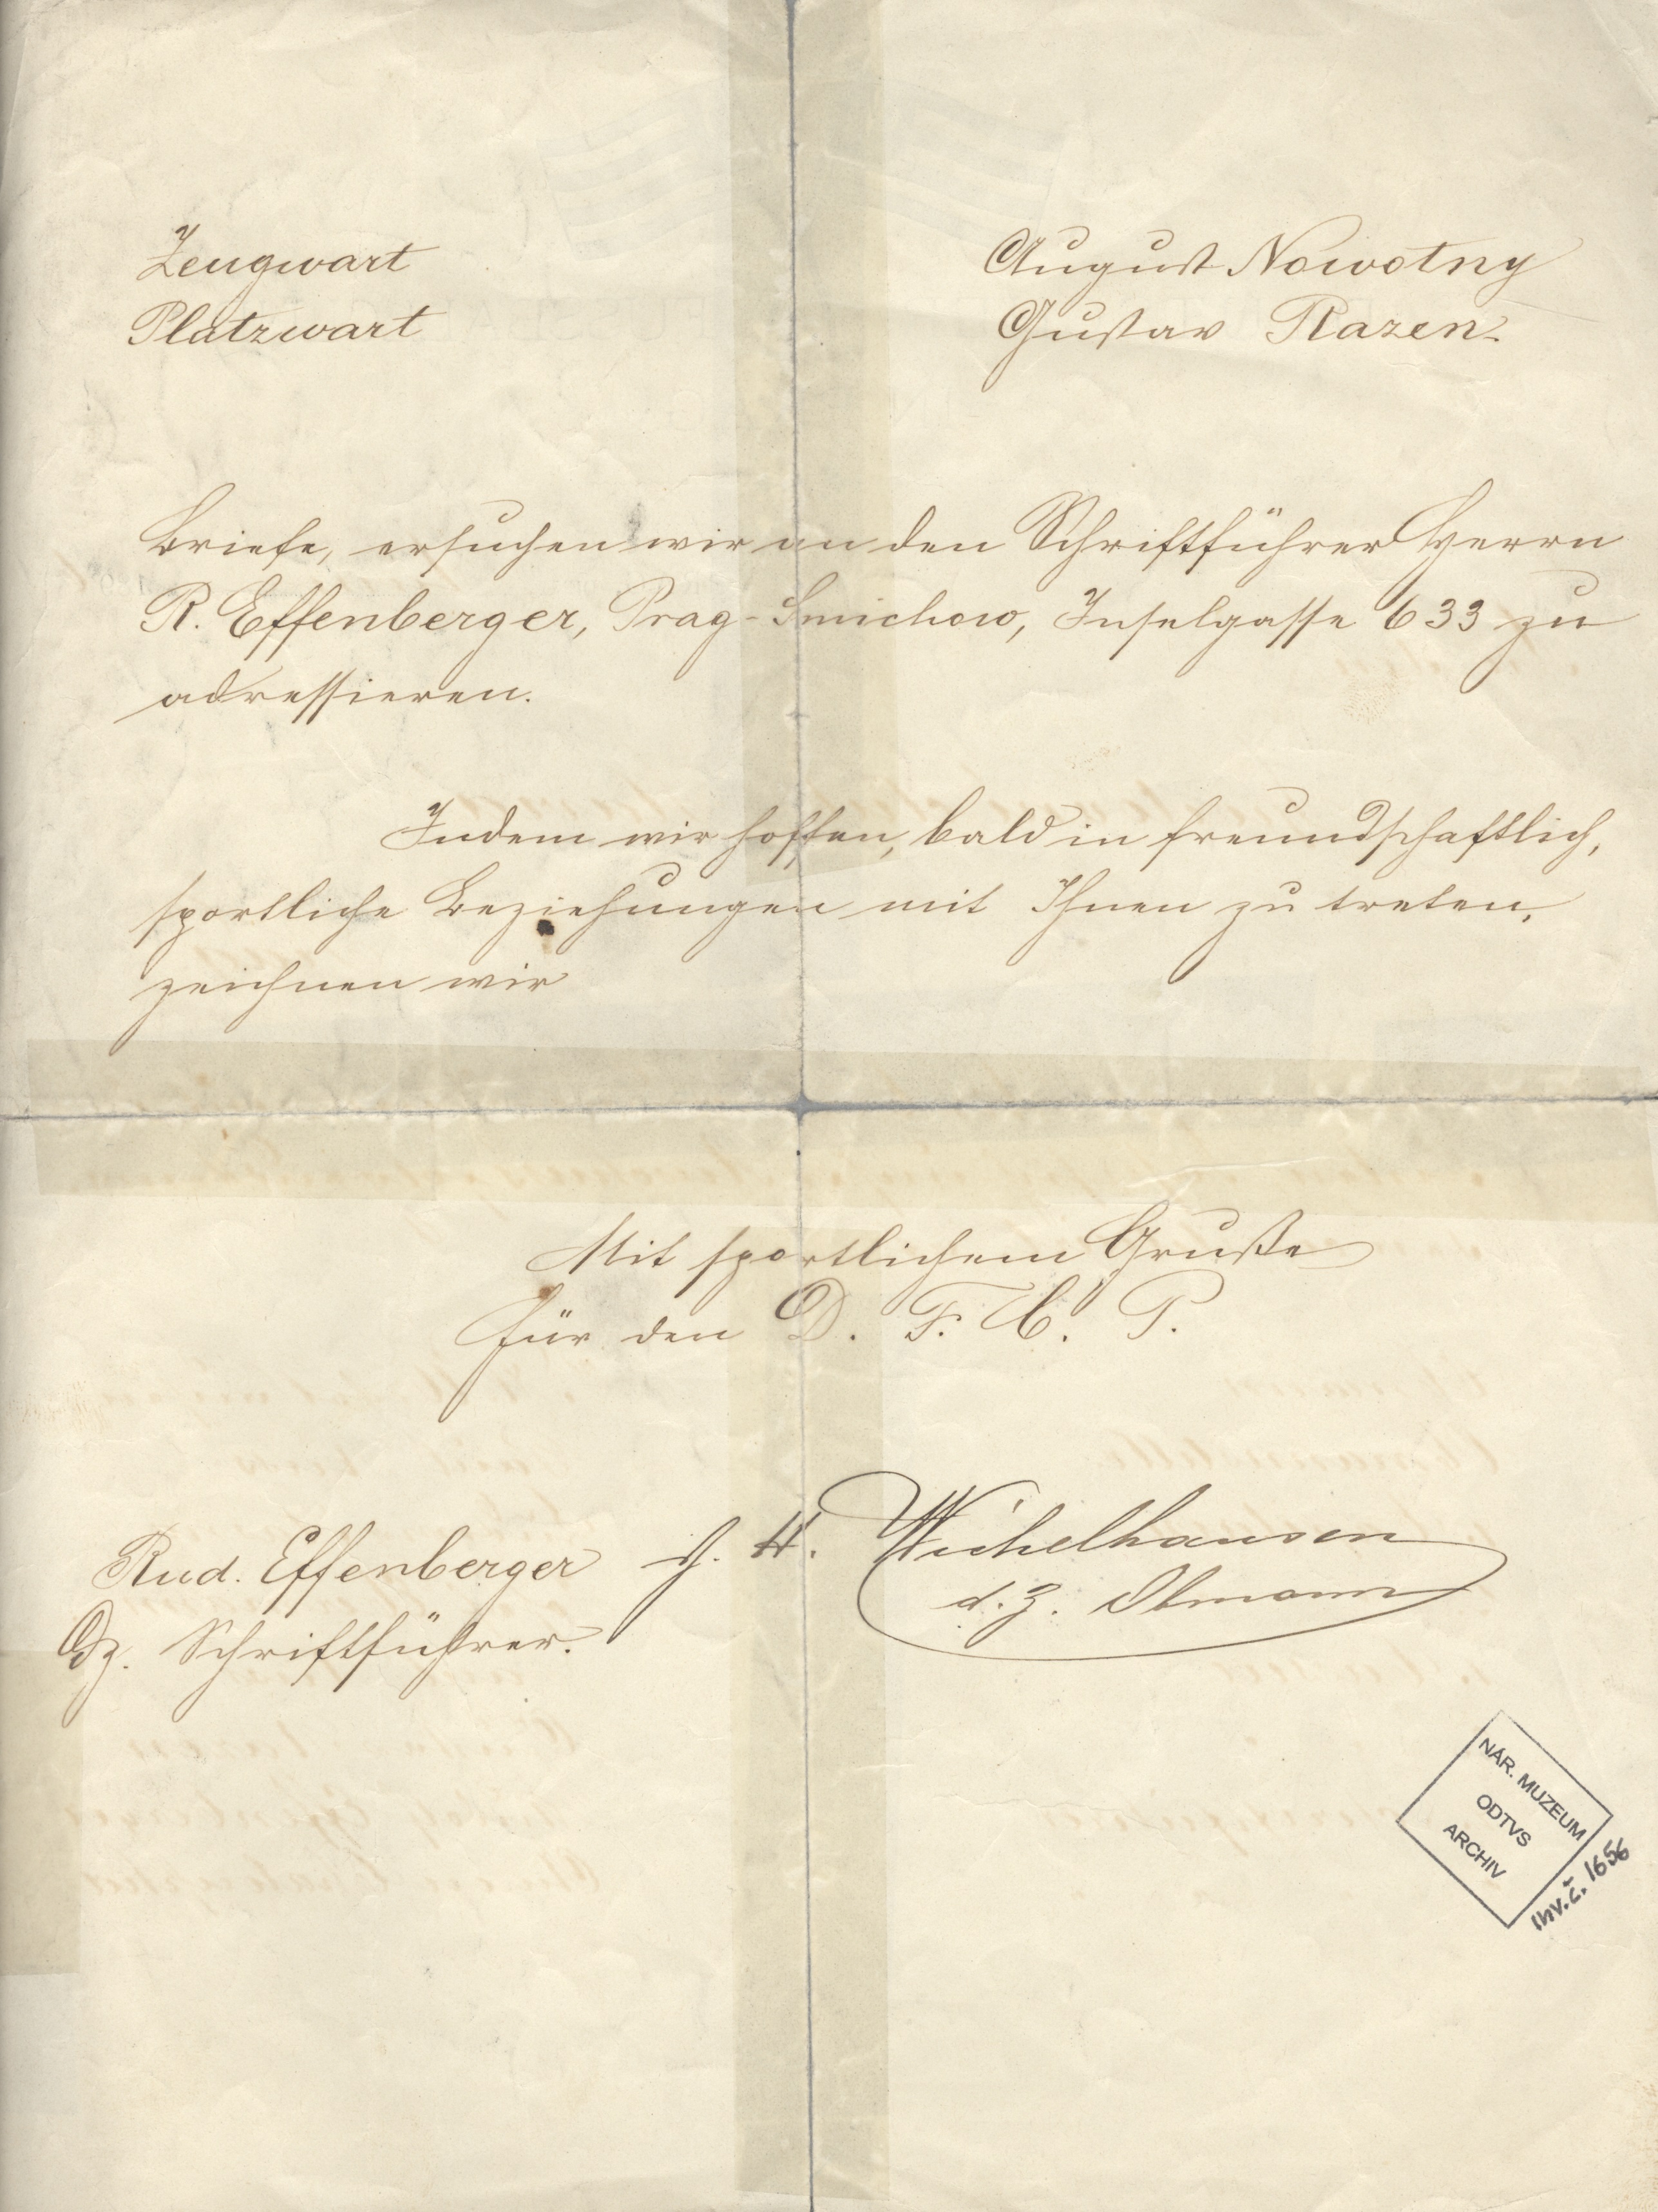 Zeugwart August Nowotny
Platzwart Gustav Razen
Briefe, ersuchen wir an den Schriftführer Herrn
R. Effenberger, Prag-Smichow, Inselgasse 633 zu
adressieren.
Indem wir hoffen, bald in freundschaftlich,
sportliche Beziehungen mit Ihnen zu treten,
zeichnen wir
Mit sportlichem Gruße
für den D. F. C. P.
Rud. Effenberger
Dz. Schriftführer.
J. H. Wichelhausen
d. Z. Obmann
NÁR. MUZEUM
ODTVS
ARCHIV
inv. č. 1656